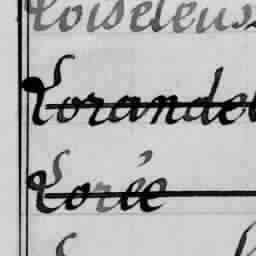 Loiseleus
Lorandel
Lorée